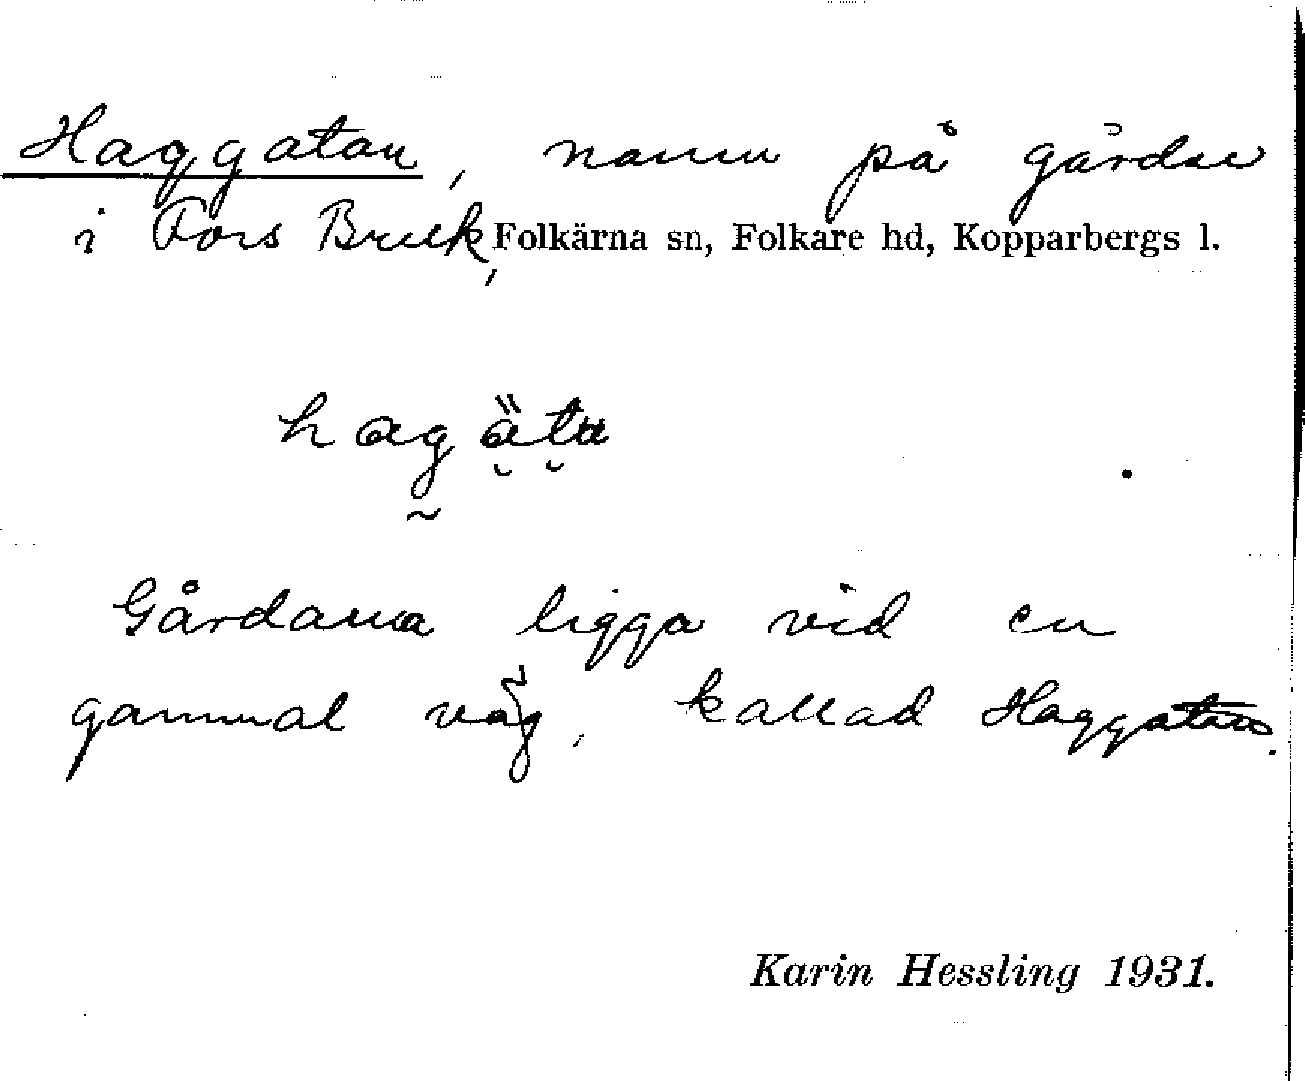 Haggatan, namn på gårdar
i Fors Bruk, Folkärna sn, Folkare hd, Kopparbergs l.
Gårdarna ligga vid en
gammal väg, kallad Haggatan.
Karin Hessling 1931.